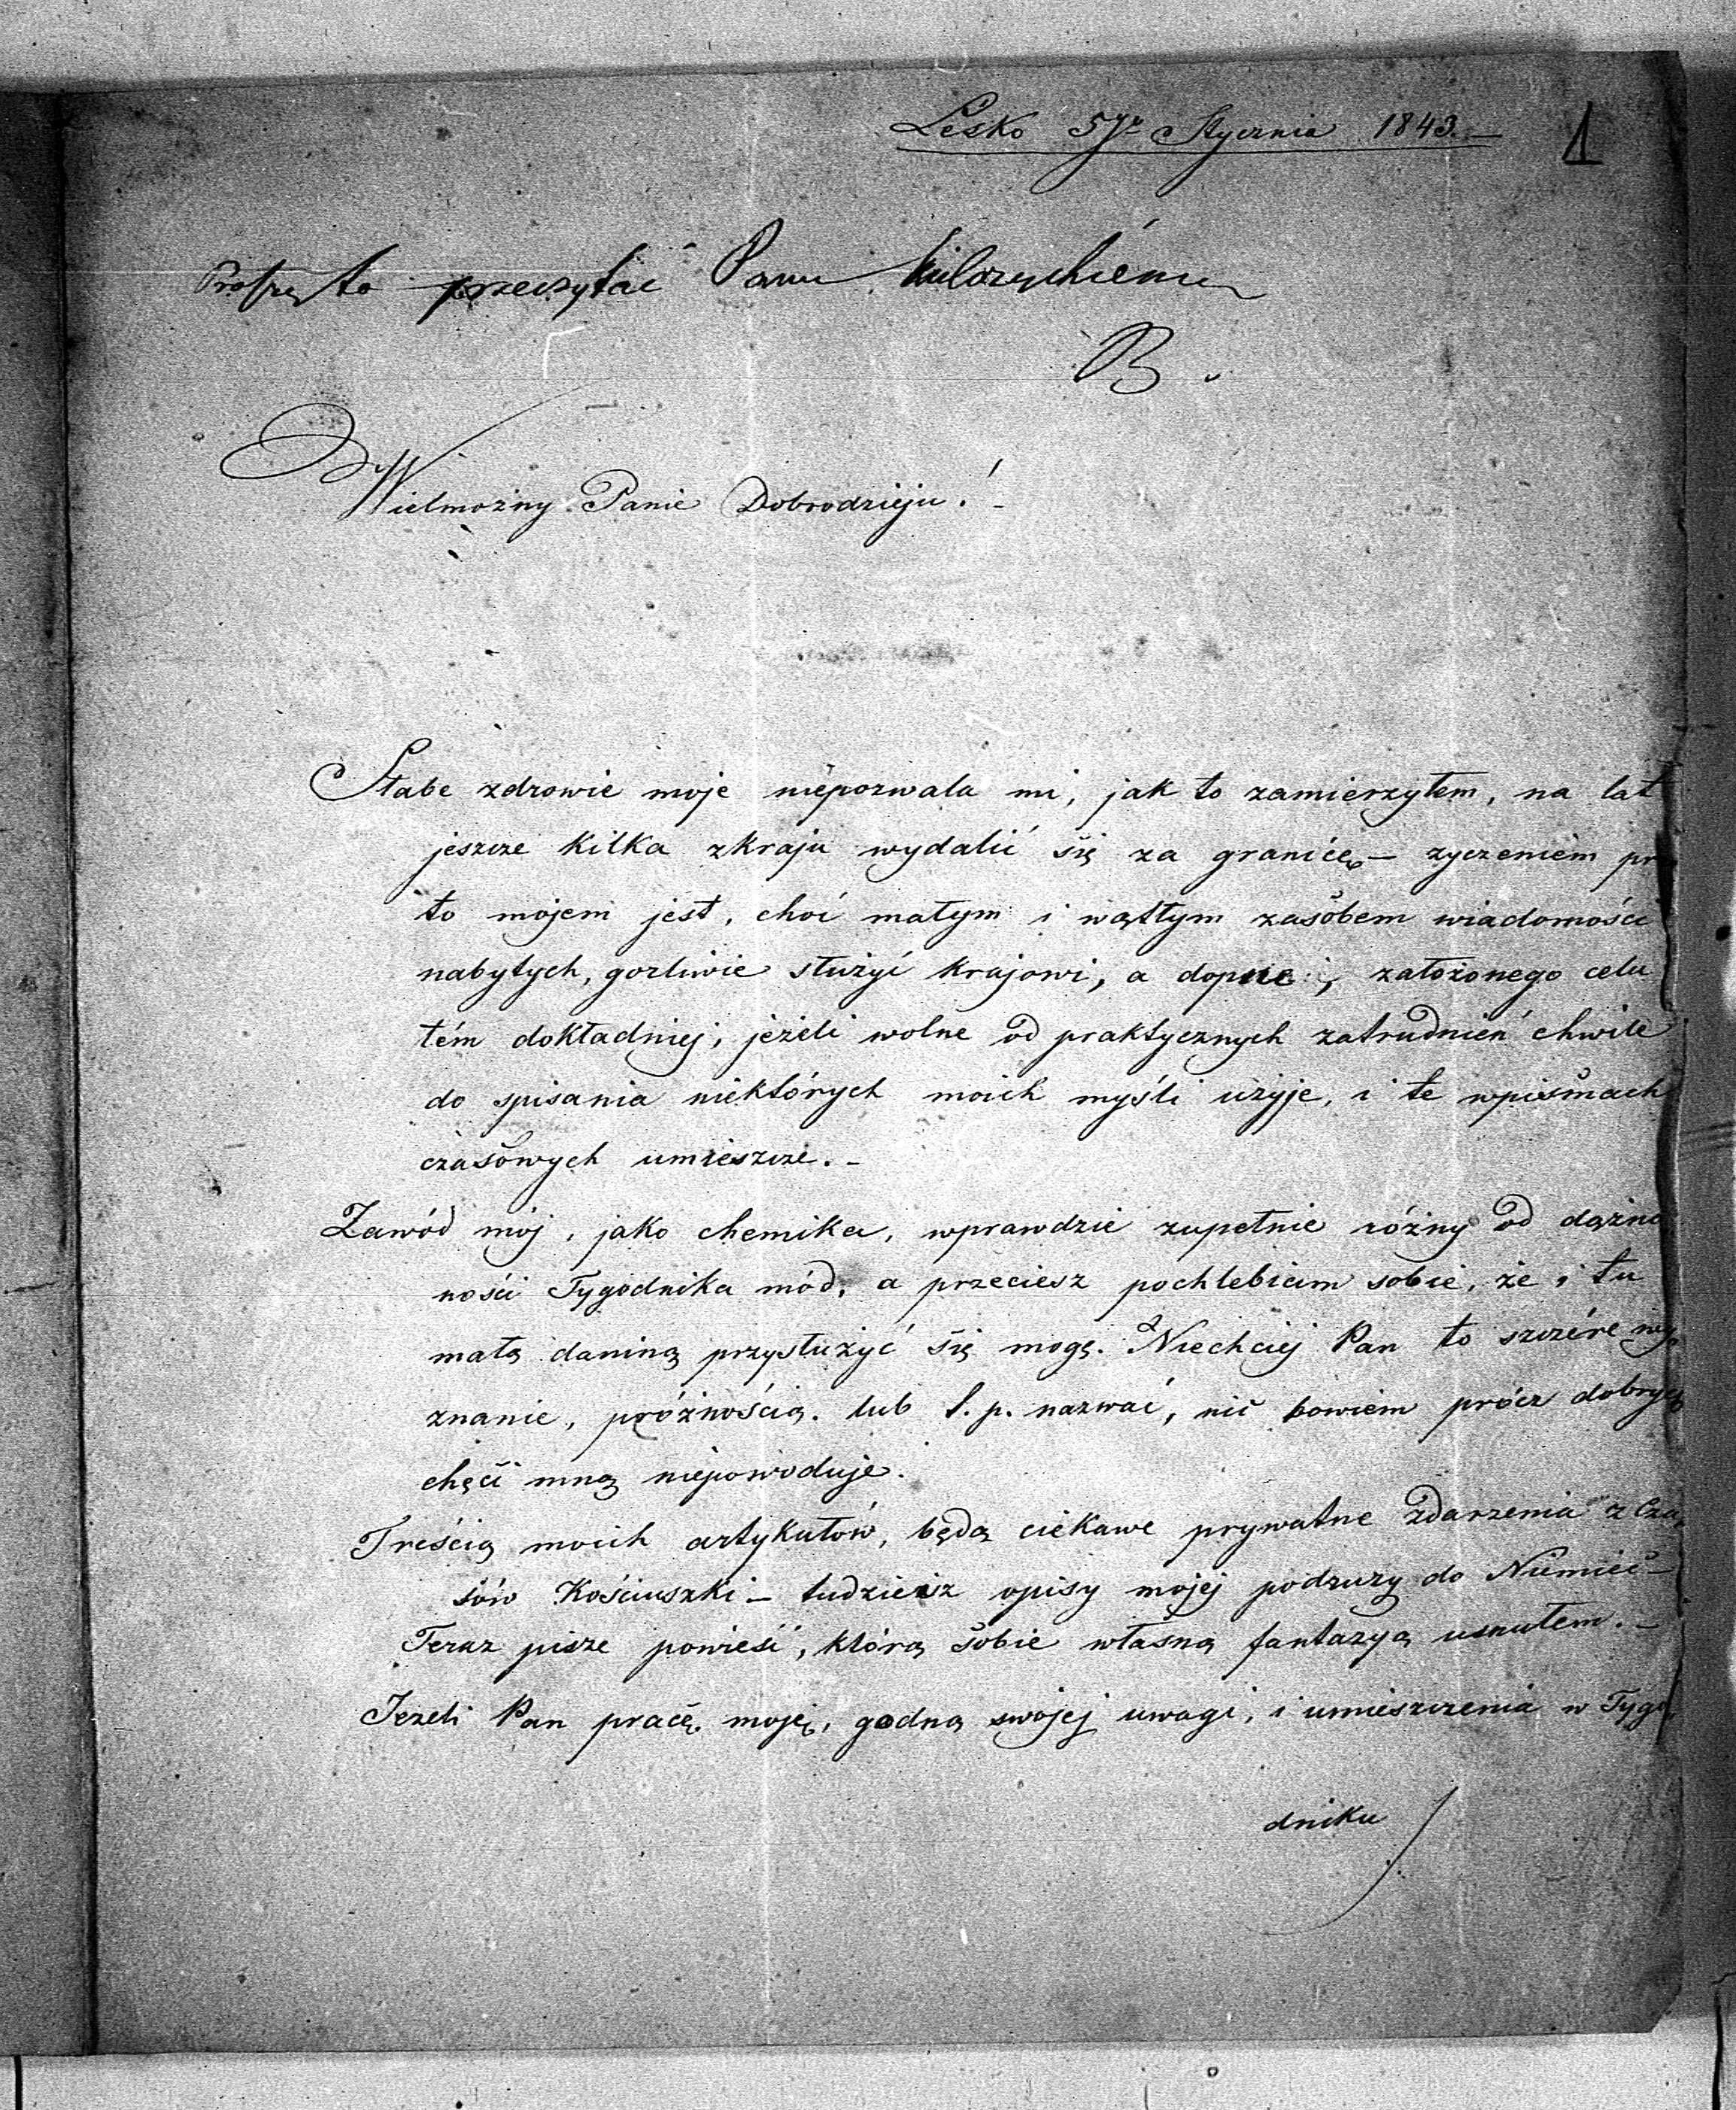 Lesko 5go Stycznia 1843. —
1
Proszę to przeczytać Panu
B.
Wielmożny Panie Dobrodzieju! –
Słabe zdrowie moje niepozwala mi, jak to zamierzyłem, na lat
jeszcze kilka zkraju wydalić się za granicę, — zyczeniem
to mojem jest, choć małym i wątłym zasobem wiadomości
nabytych, gorliwie służyć krajowi, a dopnę, założonego celu
tém dokładniej, jeżeli wolne od praktycznych zatrudnień chwile
do spisania niektórych moich myśli użyje, i te wpismach
czasowych umieszczę. –
Zawód mój, jako chemika, wprawdzie zupełnie różny od dążno
ności Tygodnika mód, a przeciesz pochlebiam sobie, że i tu
małą daniną przysłużyć się mogę. Niechciej Pan to szczére wy
znanie, próżnością. lub t. p. nazwać, nic bowiem prócz dobrych
chęci mną niepowoduje.
Treścią moich artykułów, będą ciekawe prywatne zdarzenia z Cza,
sów Kościuszki – tudzieisz opisy mojej podruzy do Niemiec –
Teraz pisze powieść, którą sobie własną fantazyą usnułem. –
Jezeli Pan pracę moję, godną swojej uwagi, i umieszczenia w Tygo
dniku